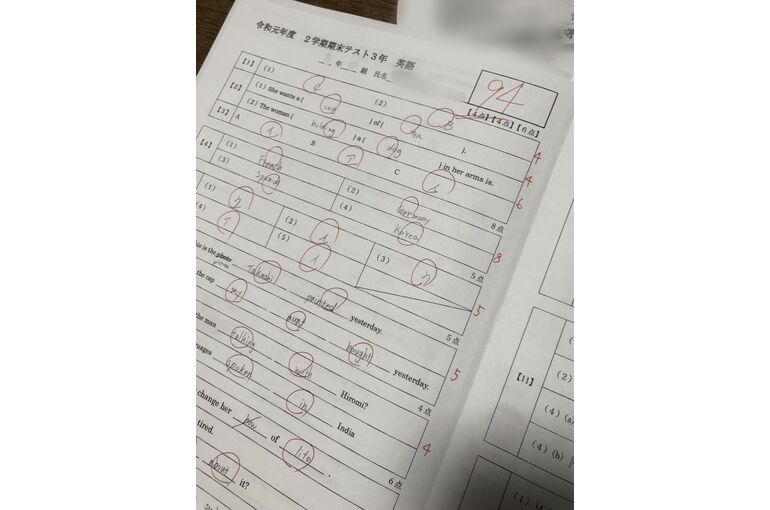 令和元年度 2学期期末テスト3年 英語
年 組 氏名
94
【1】 (1) d (2) B 【4点】【4点】【6点】
【2】 (1) She wants a ( cup ) of ( tea ).
(2) The woman ( holding ) a ( dog ) in her arms is.
【3】 A イ B エ C イ
4
4
6
【4】 (1) French (2) Germany 8点
(3) Spanish (4) Korea 8
(1) (2) イ (3) う 5点
(4) エ (5) イ 5
is is the photo Takashi painted yesterday. 5点
picture
the cap my aunt bought yesterday. 5
the man talking with Hiromi? 4点
uages spoken in India 4
change her how of life . 6点
tired.
about it?
【11】
(1)
(2)
(4) (a)
(4) (b)
(1)